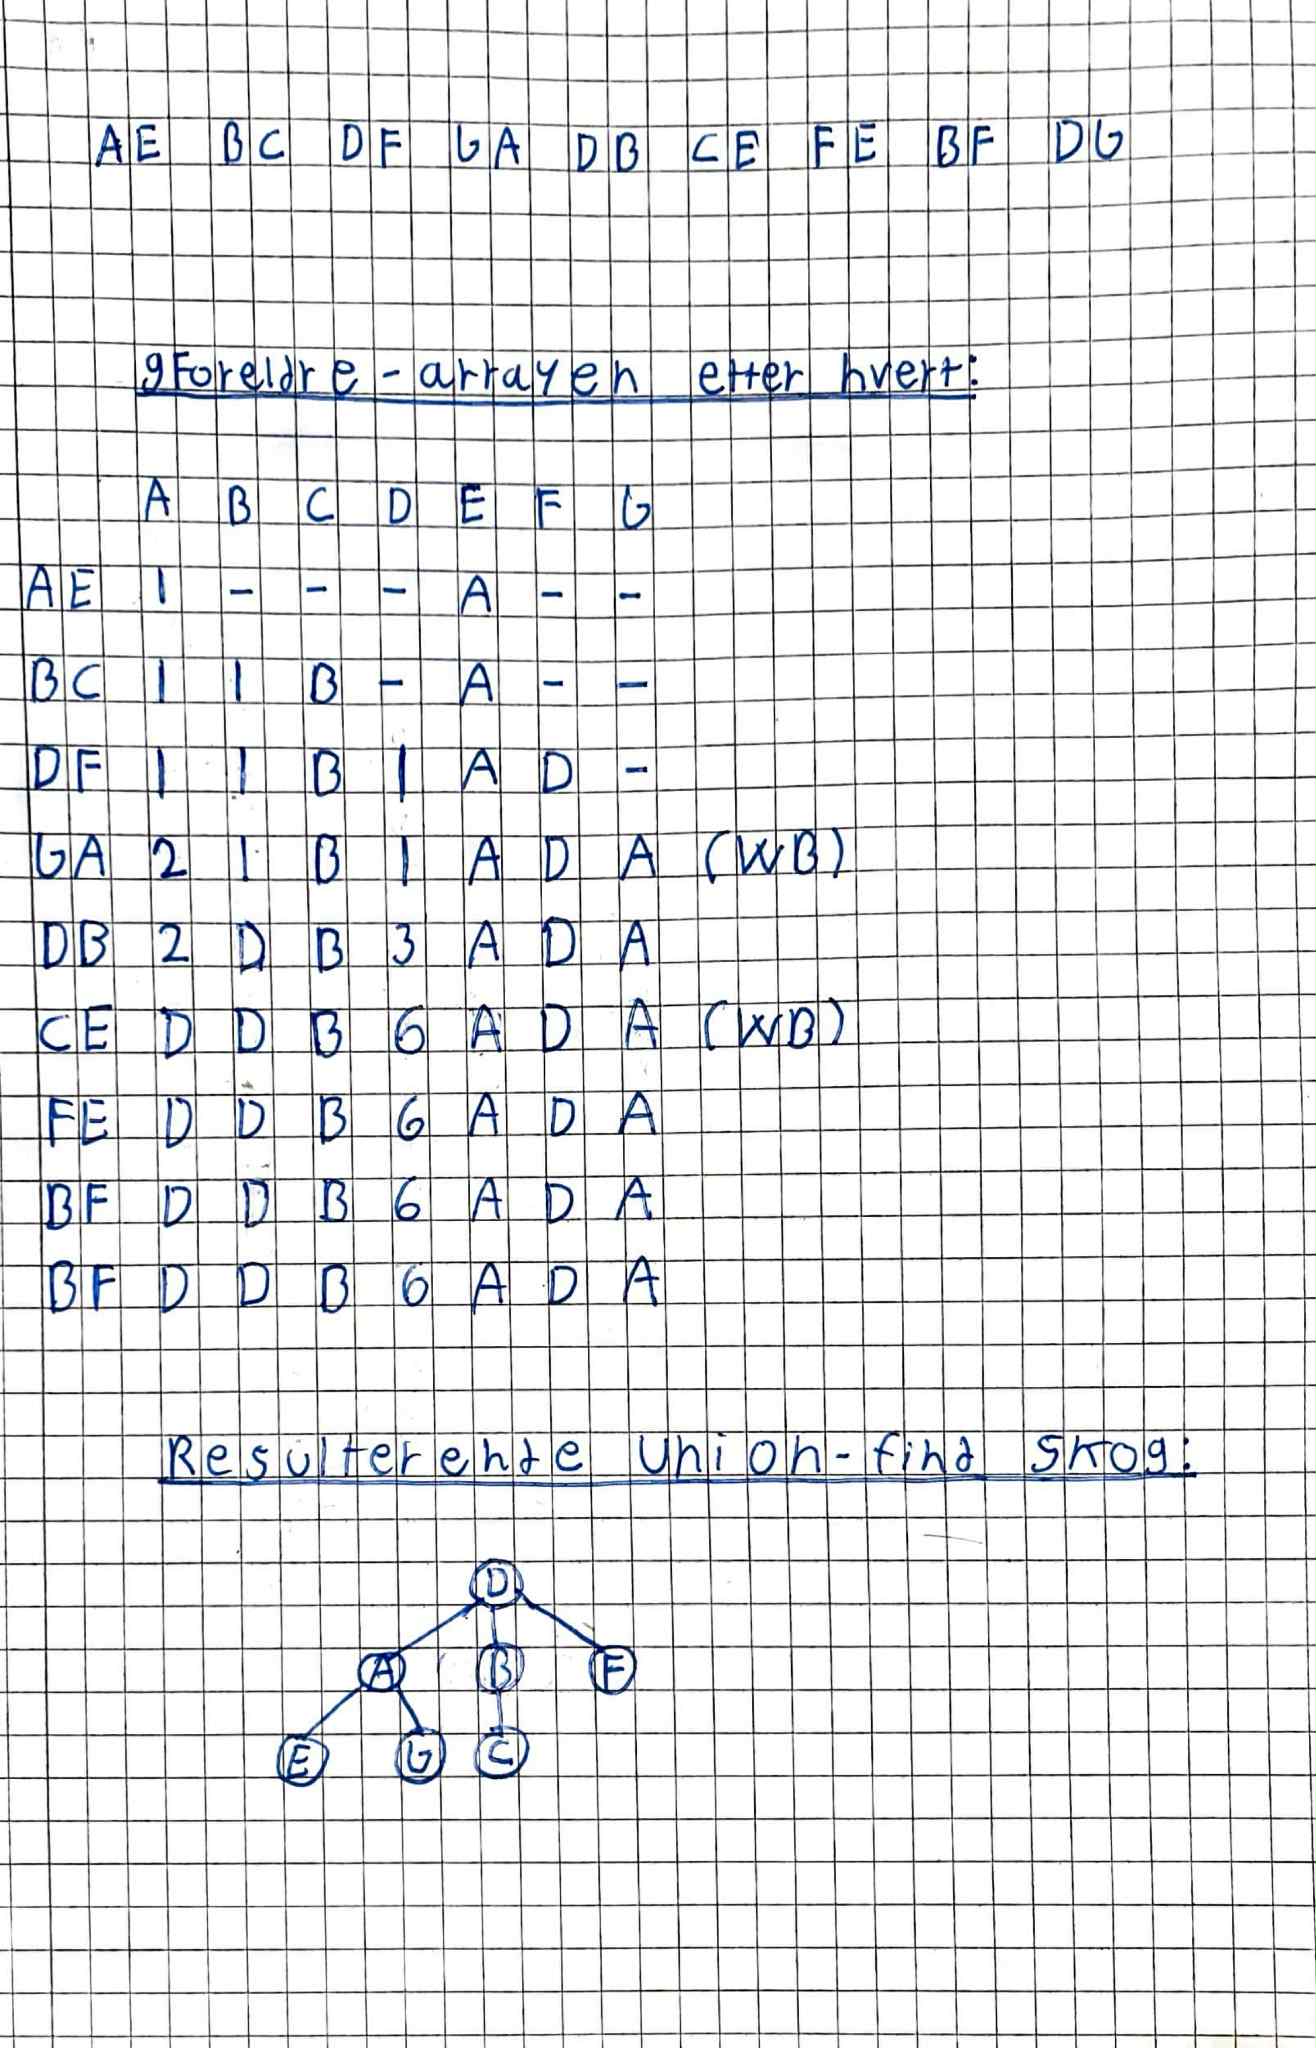 AE BC DF GA DB CE FE BF DG
gForeldre-arrayen etter hvert:
A B C D E F G
AE 1 - - - A - -
BC 1 1 B - A - -
DF 1 1 B 1 A D -
GA 2 1 B 1 A D A (WB)
DB 2 D B 3 A D A
CE D D B 6 A D A (WB)
FE D D B 6 A D A
BF D D B 6 A D A
BF D D B 6 A D A
Resulterende union-find skog:
D
A B F
E G C